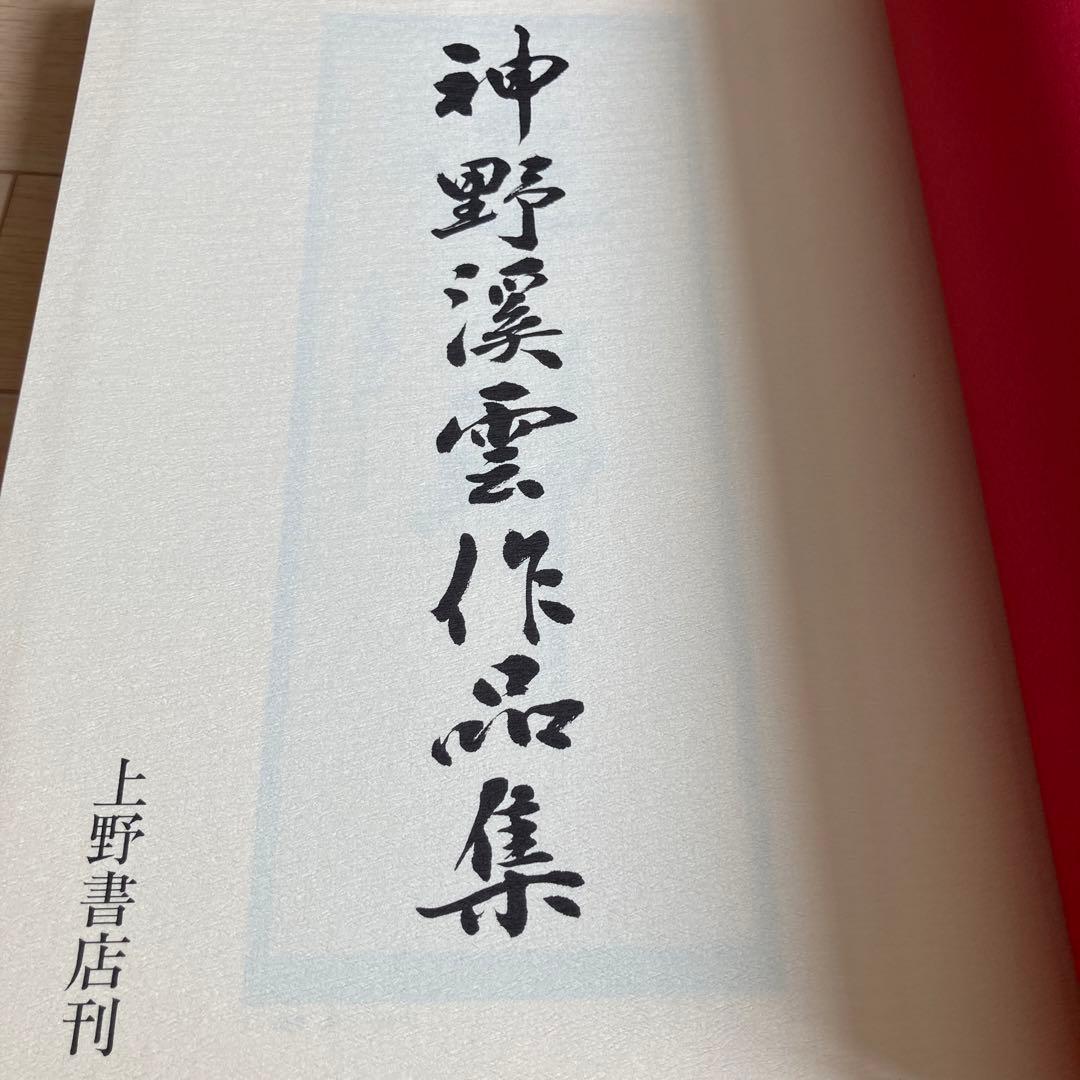 神野溪雲作品集
上野書店刊